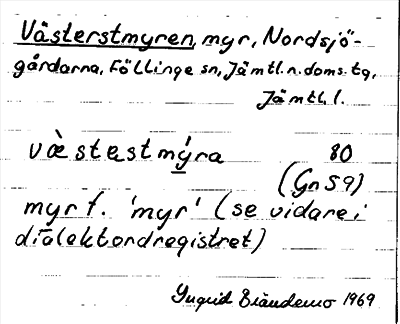 Västerstmyren, myr, Nordsjö-
gårdarna, Föllinge sn, Jämtl. n. doms. tg,
Jämtl. l.
væ̀stestmý̱ra 80
(Gn S9)
myr f. 'myr' (se vidare i
dialektordregistret)
Ingrid Brändemo 1969